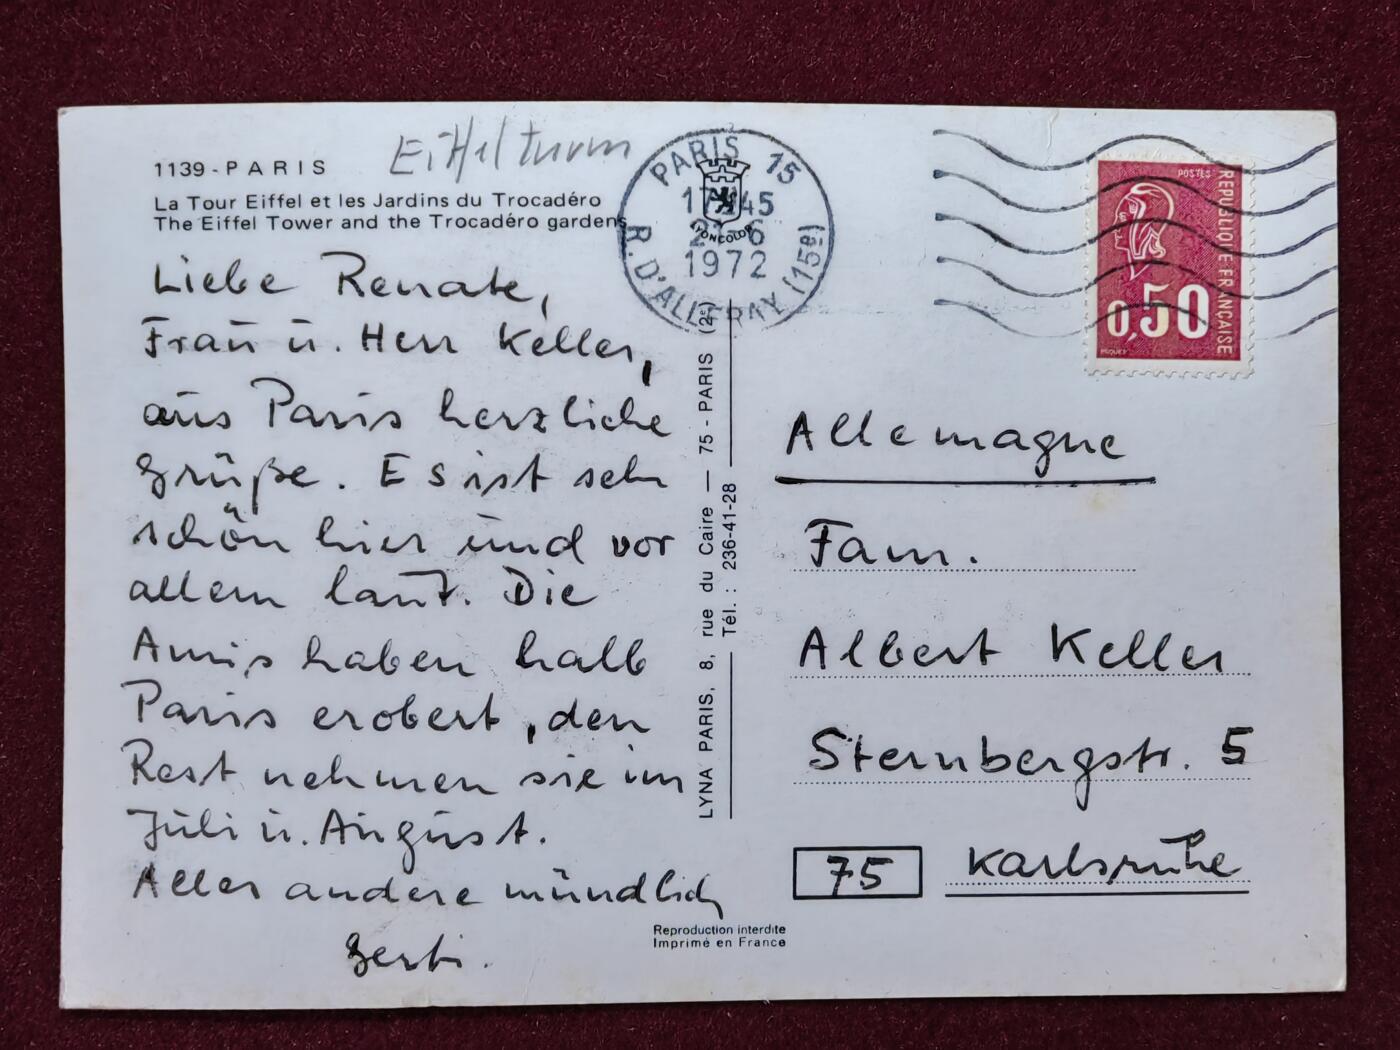 1139 - PARIS
Eiffelturm
La Tour Eiffel et les Jardins du Trocadéro
The Eiffel Tower and the Trocadéro gardens
Liebe Renate,
Frau u. Herr Keller,
aus Paris herzliche
Grüße. Es ist sehr
schön hier und vor
allem laut. Die
Amis haben halb
Paris erobert, den
Rest nehmen sie im
Juli u. August.
Alles andere mündlich
Gerti.
PARIS 15
17H45
21-6
1972
R. D'ALLERAY (15e)
LYONCOLOR
LYNA PARIS, 8, rue du Caire — 75 - PARIS (2e)
Tél. : 236-41-28
POSTES
REPUBLIQUE FRANÇAISE
0,50
Allemagne
Fam.
Albert Keller
Sternbergstr. 5
75 Karlsruhe
Reproduction interdite
Imprimé en France